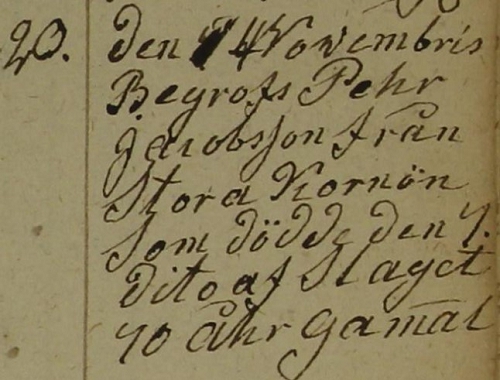 20. den 14 Novembris
Begrofs Pehr
Jacobsson från
Stora Kornön
som dödde den 7.
dito af Slaget
70 åhr gamal